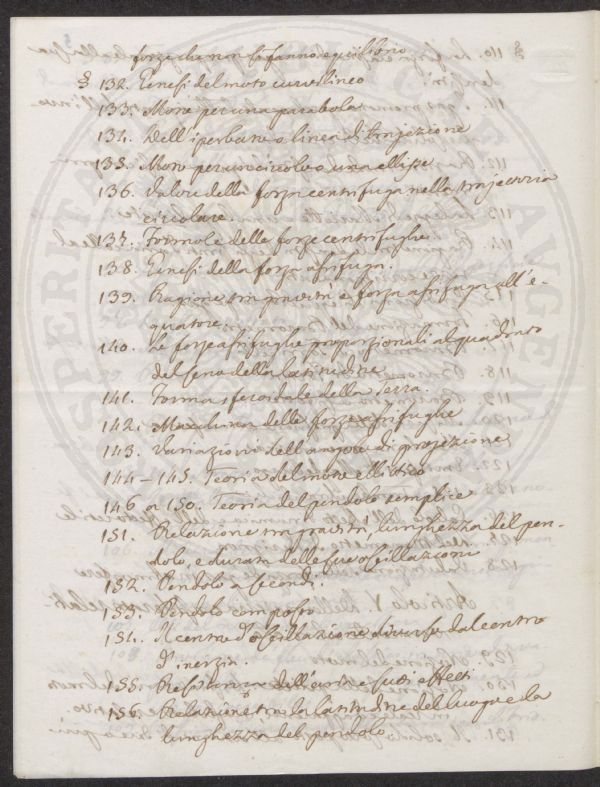 forze che non si fanno equilibrio
§ 132. Genesi del moto curvilineo
133. Moto per una parabola
134. Dell'iperbate o linea di trajezione
135. Moto per un circolo o una ellisse
136. Valore della forza centrifuga nella trajettoria
circolare.
137. Formole delle forze centrifughe.
138. Genesi della forza afrifuga.
139. Ragione tra gravità e forza afrifuga all'e-
quatore.
140. Le forze afrifughe proporzionali al quadrato
del seno della latitudine
141. Forma sferoidale della Terra.
142. Macchina delle forze afrifughe
143. Variazioni dell' di projezione
144–145. Teoria del moto ellittico
146 a 150. Teoria del pendolo semplice
151. Relazione tra gravità, lunghezza del pen-
dolo, e durata delle sue oscillazioni
152. Pendolo a secondi.
153. Pendolo composto
154. Il centro d'oscillazione diverso dal centro
d'inerzia.
155. Resistenza dell'aria e suoi effetti
156. Relazione tra la latitudine del luogo e la
lunghezza del pendolo